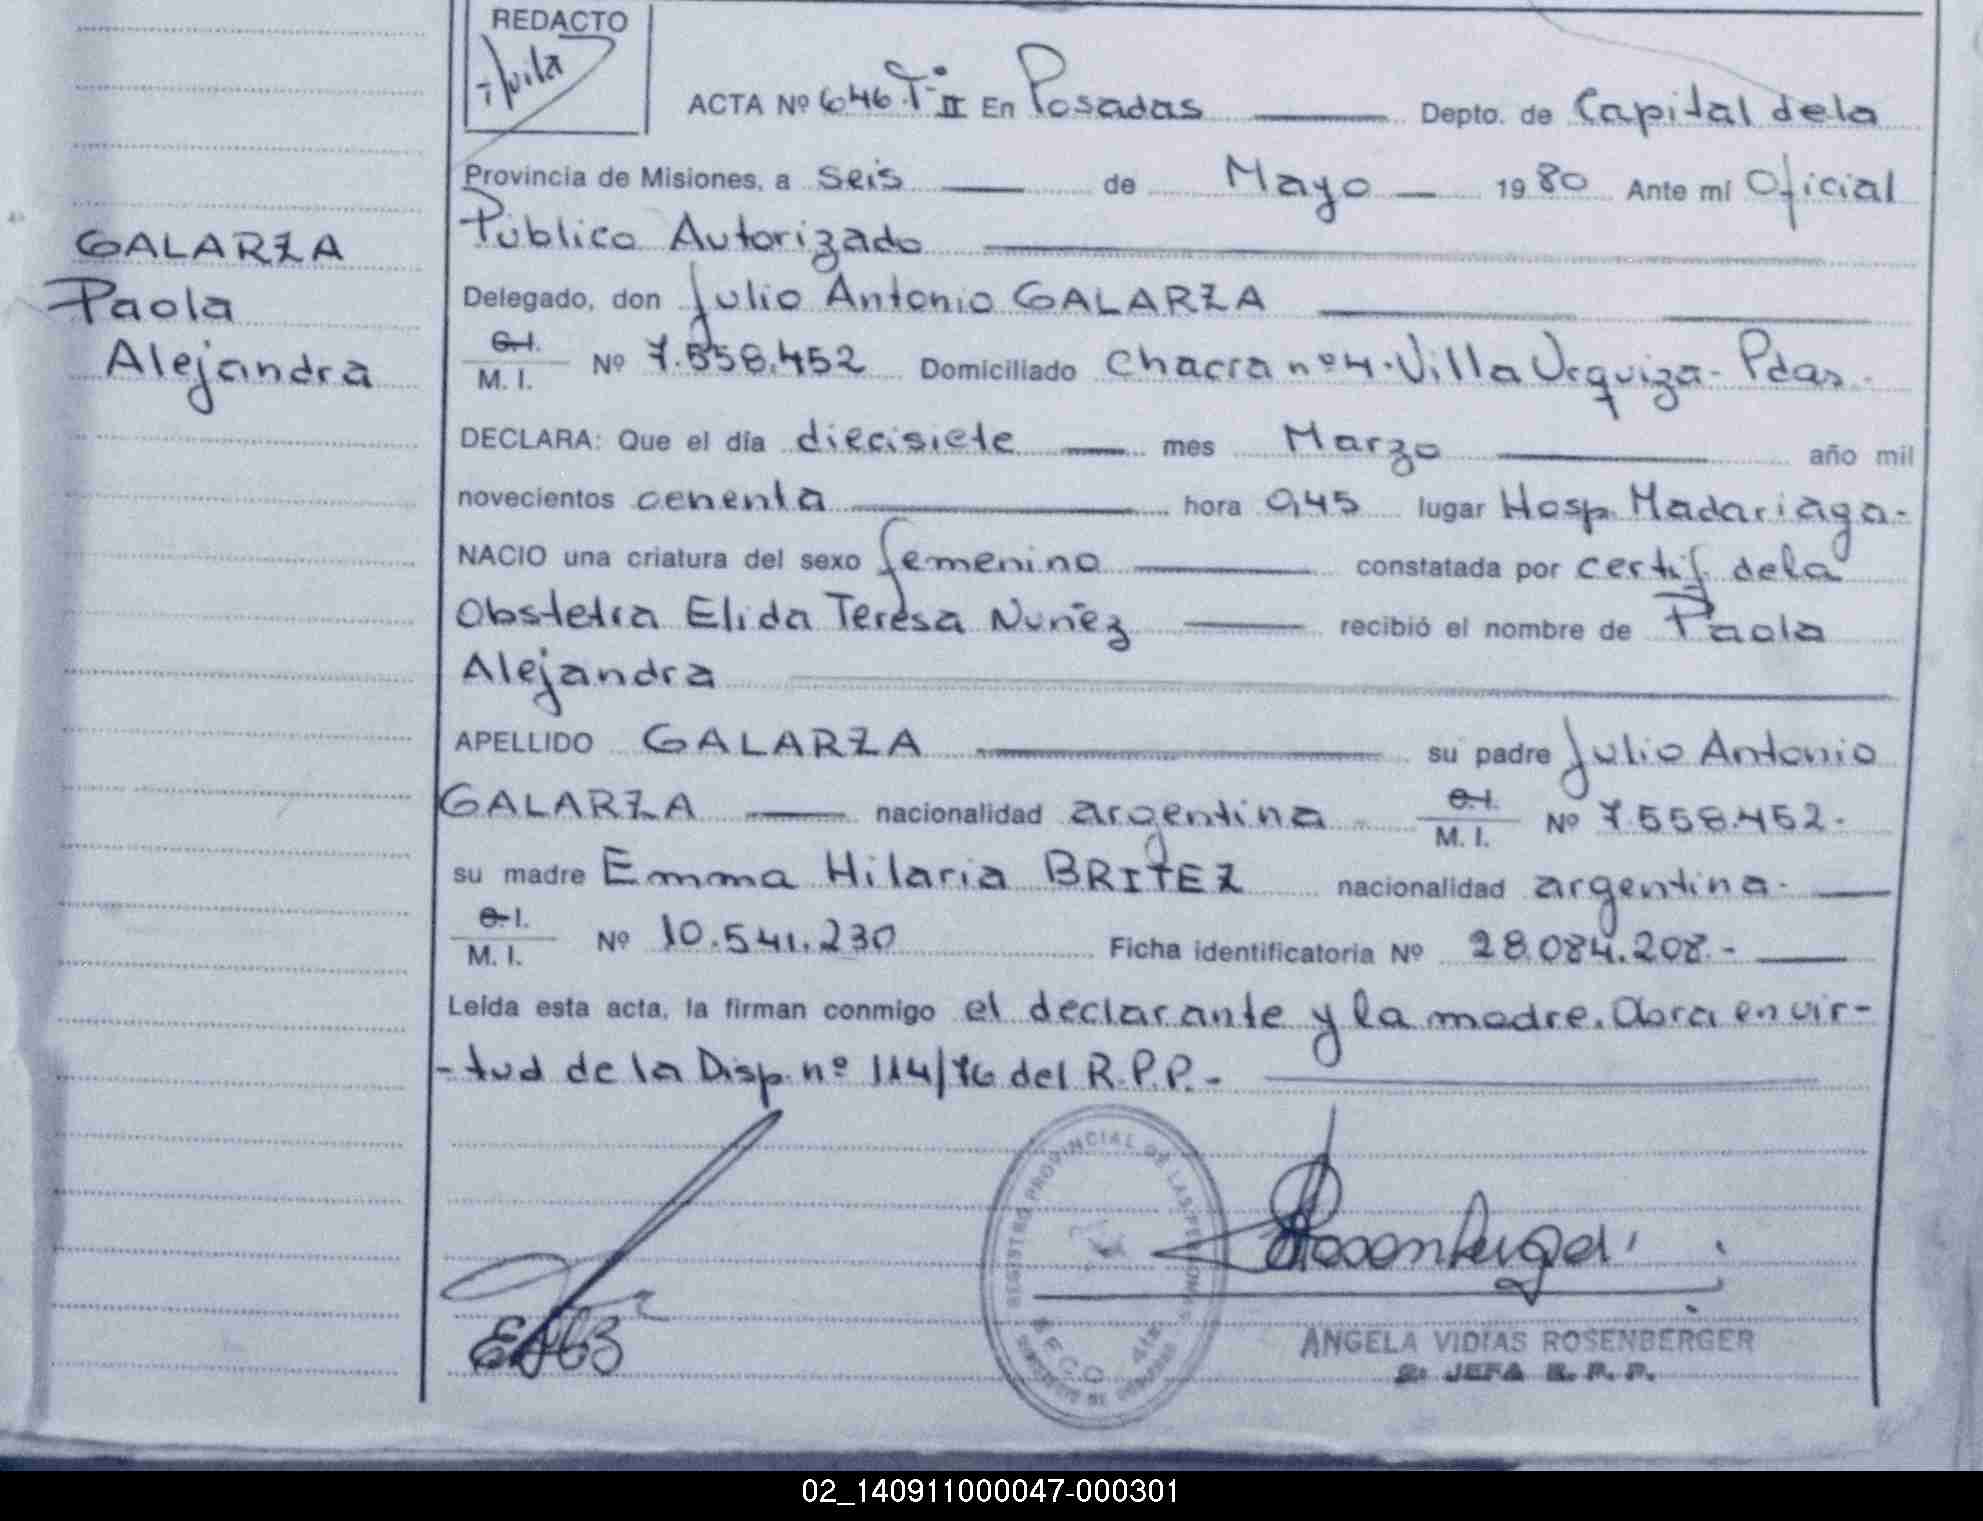 REDACTO
ACTA Nº 646 Tº II En Posadas Depto. de Capital de la
Provincia de Misiones, a seis de Mayo 1980 Ante mí Oficial
Público Autorizado
GALARZA
Paola
Alejandra
Delegado, don Julio Antonio GALARZA
C.I. M.I. Nº 7.558.452 Domiciliado Chacra nº 4. Villa Urquiza - Pdas.
DECLARA: Que el día diecisiete mes Marzo año mil
novecientos ochenta hora 0,45 lugar Hosp. Madariaga-
NACIO una criatura del sexo femenino constatada por certif. de la
Obstetra Elida Teresa Nuñez recibió el nombre de Paola
Alejandra
APELLIDO GALARZA su padre Julio Antonio
GALARZA nacionalidad argentina C.I. M.I. Nº 7.558.452.
su madre Emma Hilaria BRITEZ nacionalidad argentina-
C.I. M.I. Nº 10.541.230 Ficha identificatoria Nº 28.084.208.-
Leída esta acta, la firman conmigo el declarante y la madre. Obra en vir-
-tud de la Disp. nº 114/76 del R.P.P.-
REGISTRO PROVINCIAL DE LAS PERSONAS
ANGELA VIDIAS ROSENBERGER
2ª JEFA R. P. P.
02_140911000047-000301